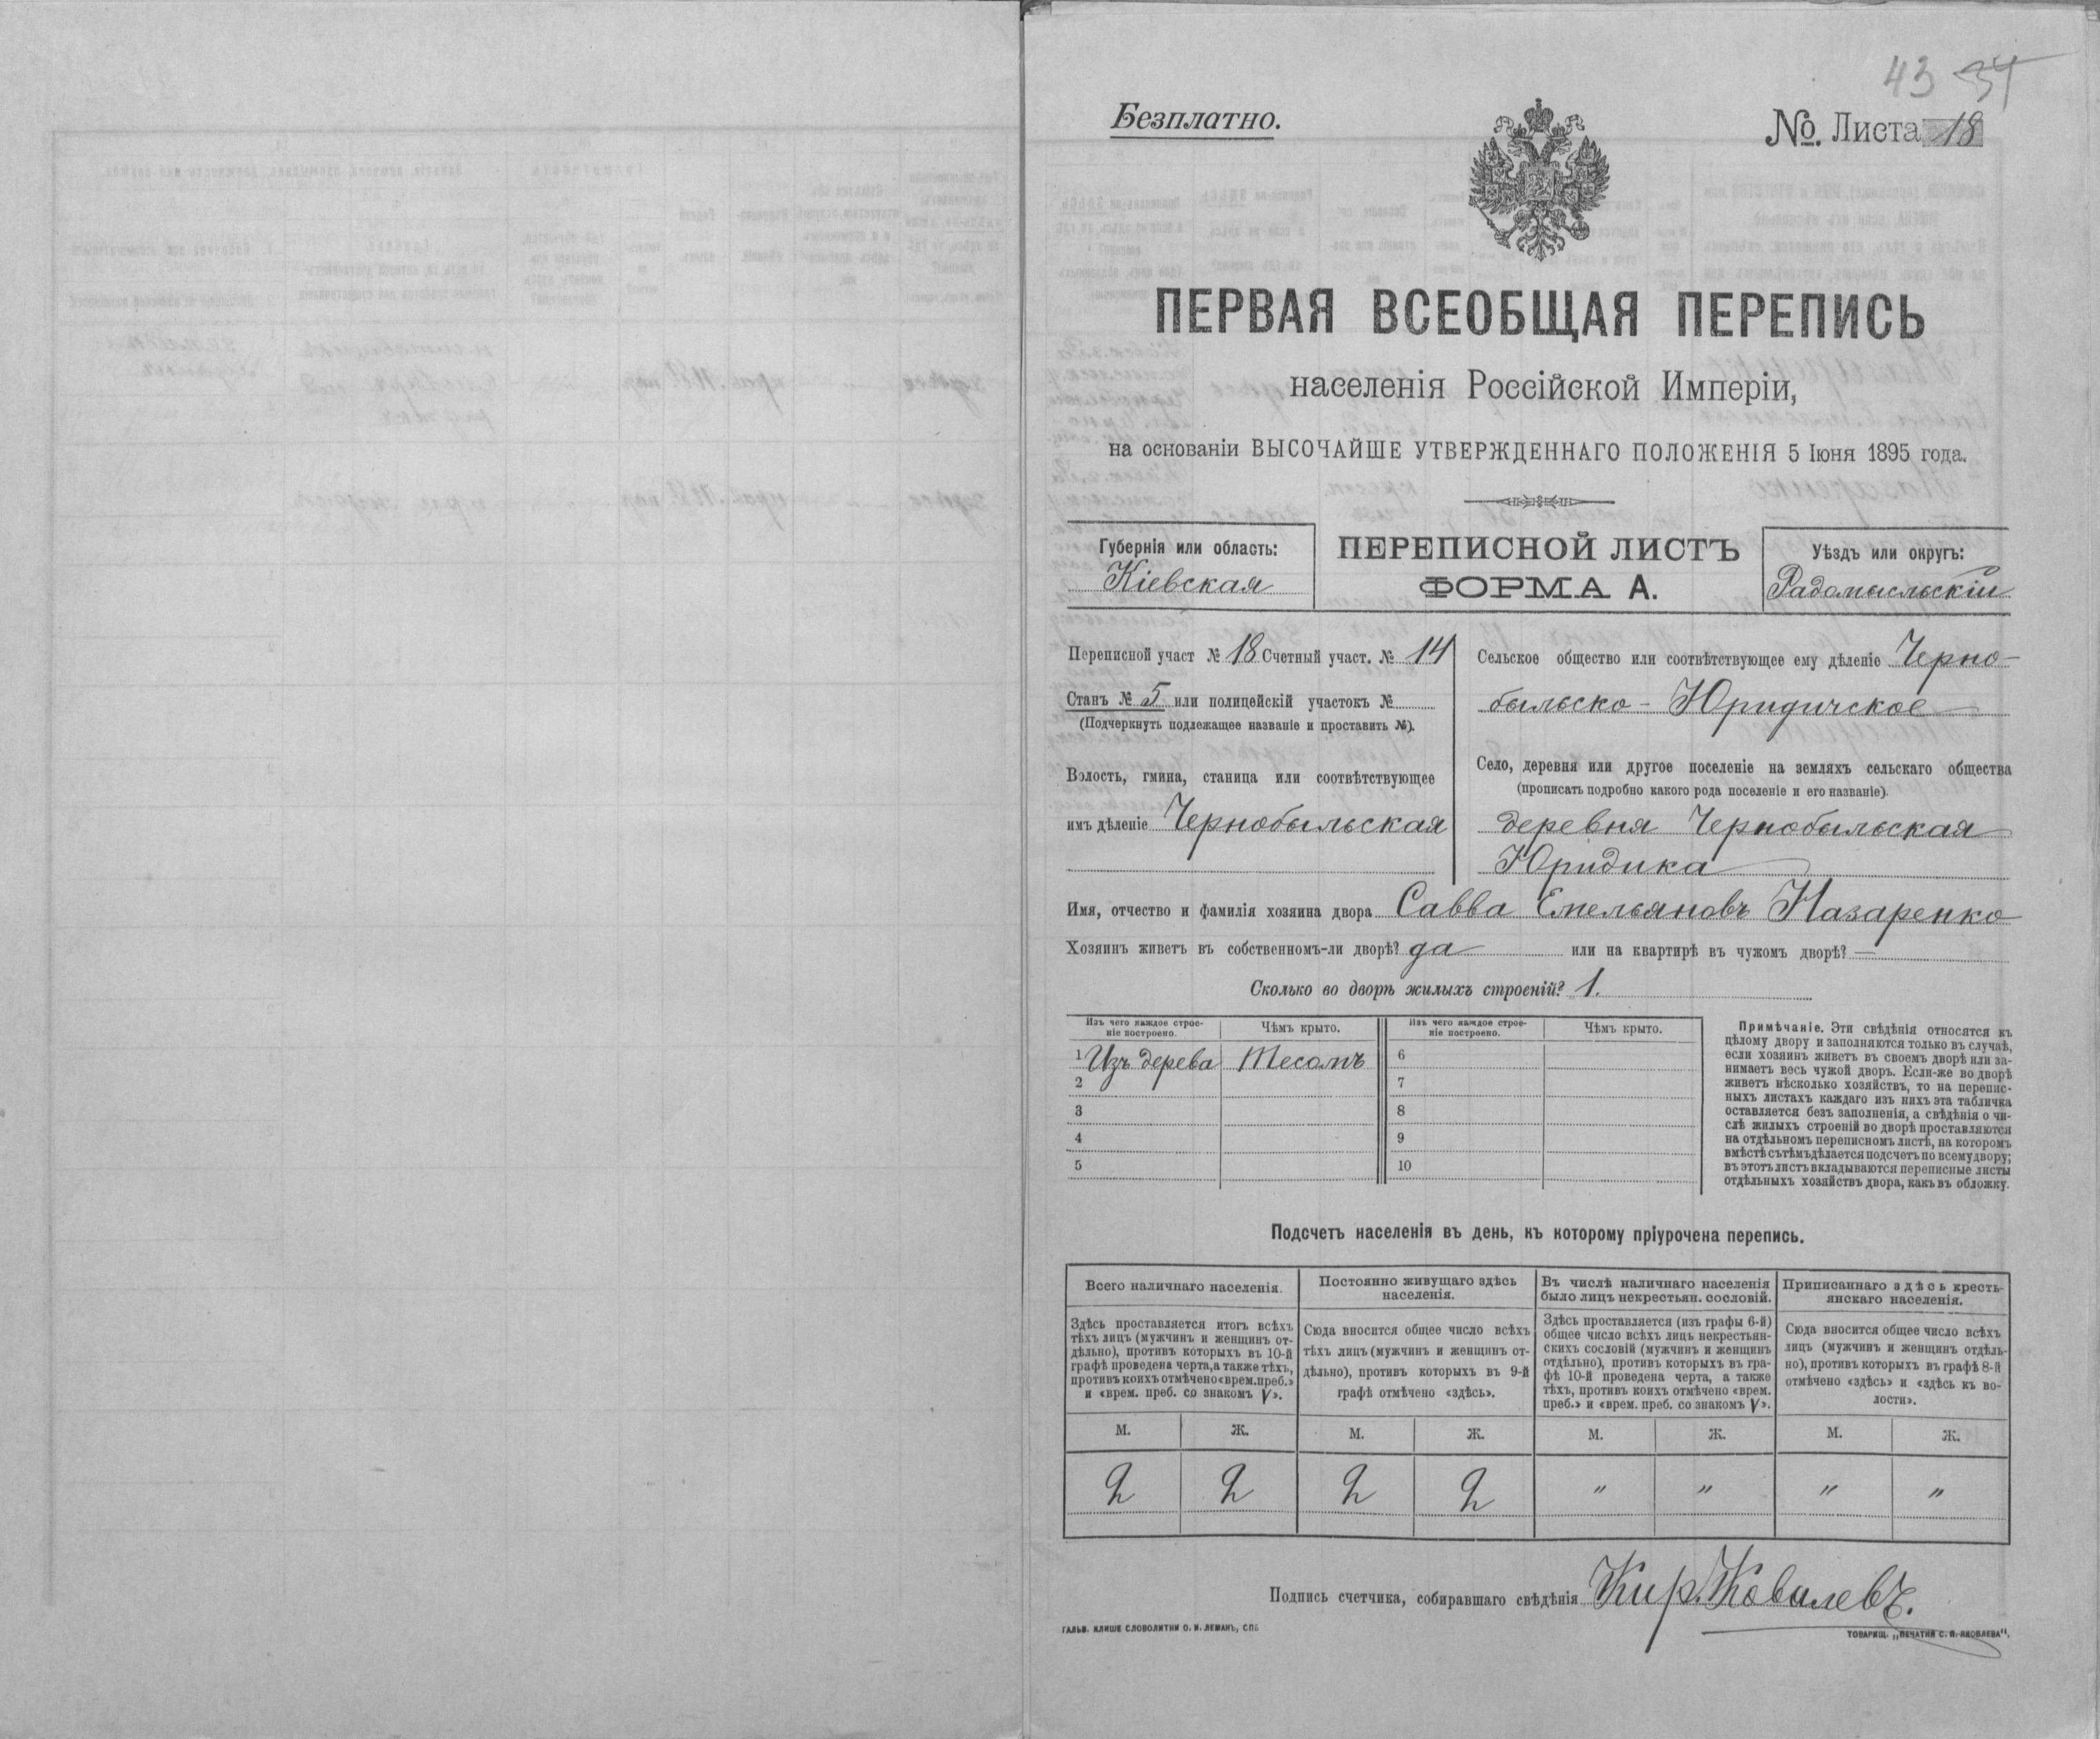 43 34
Безплатно.
№. Листа 18
ПЕРВАЯ ВСЕОБЩАЯ ПЕРЕПИСЬ
населенія Россійской Имперіи,
на основаніи ВЫСОЧАЙШЕ УТВЕРЖДЕННАГО ПОЛОЖЕНІЯ 5 Іюня 1895 года.
Губернія или область:
Кіевская
ПЕРЕПИСНОЙ ЛИСТЪ
ФОРМА А.
Уѣздъ или округъ:
Радомысльскій
Переписной участ № 18 Счетный участ. № 14
Станъ № 5 или полицейскій участокъ №
(Подчеркнуть подлежащее названіе и проставить №).
Волость, гмина, станица или соотвѣтствующее
имъ дѣленіе Чернобыльская
Сельское общество или соотвѣтствующее ему дѣленіе Черно-
быльско - Юридичское
Село, деревня или другое поселеніе на земляхъ сельскаго общества
(прописать подробно какого рода поселеніе и его названіе).
деревня Чернобыльская
Юридика
Имя, отчество и фамилія хозяина двора Савва Емельяновъ Назаренко
Хозяинъ живетъ въ собственномъ-ли дворѣ? да или на квартирѣ въ чужомъ дворѣ? —
Сколько во дворѣ жилыхъ строеній? 1.
Изъ чего каждое строе-
ніе построено.
Чѣмъ крыто.
Изъ чего каждое строе-
ніе построено.
Чѣмъ крыто.
1 Изъ дерева Тесомъ 6
2 7
3 8
4 9
5 10
Примѣчаніе. Эти свѣдѣнія относятся къ
цѣлому двору и заполняются только въ случаѣ,
если хозяинъ живетъ въ своемъ дворѣ или за-
нимаетъ весь чужой дворъ. Если-же во дворѣ
живетъ нѣсколько хозяйствъ, то на перепис-
ныхъ листахъ каждаго изъ нихъ эта табличка
оставляется безъ заполненія, а свѣдѣнія о чи-
слѣ жилыхъ строеній во дворѣ проставляются
на отдѣльномъ переписномъ листѣ, на которомъ
вмѣстѣ сътѣмъ дѣлается подсчетъ по всему двору;
въ этотъ листъ вкладываются переписные листы
отдѣльныхъ хозяйствъ двора, какъ въ обложку.
Подсчетъ населенія въ день, къ которому пріурочена перепись.
Всего наличнаго населенія.
Здѣсь проставляется итогъ всѣхъ
тѣхъ лицъ (мужчинъ и женщинъ от-
дѣльно), противъ которыхъ въ 10-й
графѣ проведена черта, а также тѣхъ,
противъ коихъ отмѣчено «врем. преб.»
и «врем. преб. со знакомъ V».
Постоянно живущаго здѣсь
населенія.
Сюда вносится общее число всѣхъ
тѣхъ лицъ (мужчинъ и женщинъ от-
дѣльно), противъ которыхъ въ 9-й
графѣ отмѣчено «здѣсь».
Въ числѣ наличнаго населенія
было лицъ некрестьян. сословій.
Здѣсь проставляется (изъ графы 6-й)
общее число всѣхъ лицъ некрестьян-
скихъ сословій (мужчинъ и женщинъ
отдѣльно), противъ которыхъ въ гра-
фѣ 10-й проведена черта, а также
тѣхъ, противъ коихъ отмѣчено «врем.
преб.» и «врем. преб. со знакомъ V».
Приписаннаго здѣсь кресть-
янскаго населенія.
Сюда вносится общее число всѣхъ
лицъ (мужчинъ и женщинъ отдѣль-
но), противъ которыхъ въ графѣ 8-й
отмѣчено «здѣсь» и «здѣсь къ во-
лости».
М. Ж. М. Ж. М. Ж. М. Ж.
2 2 2 2 " " " "
Подпись счетчика, собиравшаго свѣдѣнія Кир. Ковалевъ.
ГАЛЬВ. КЛИШЕ СЛОВОЛИТНИ О. И. ЛЕМАНЪ, СПБ
ТОВАРИЩ. „ПЕЧАТНЯ С. П. ЯКОВЛЕВА“.